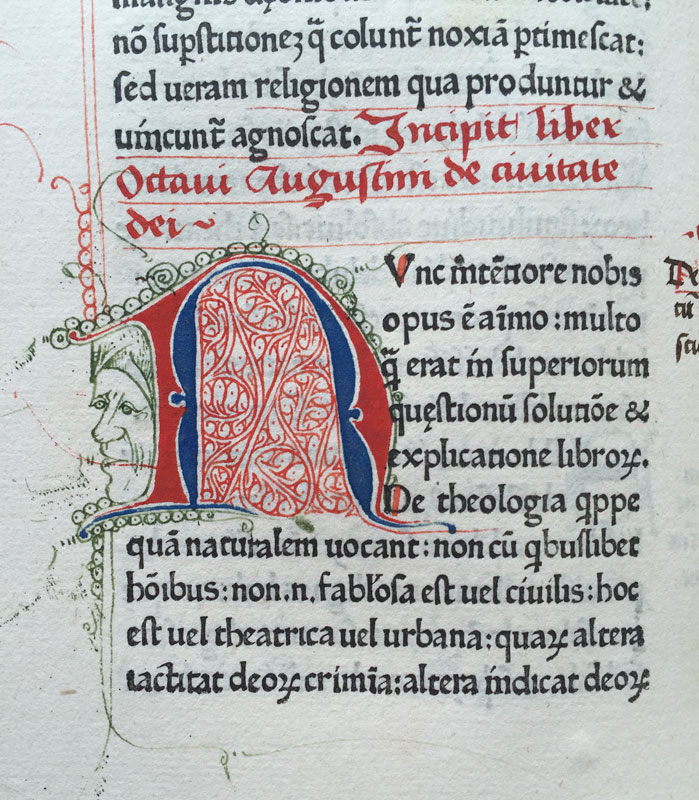 nō suꝑstitioneȝ q̄ colunt̄ noxiā ꝑtimescat:
sed ueram religionem qua produntur &
uincunt̄ agnoscat. Incipit liber
Octaui Augustini de ciuitate
dei ~
NVnc ītētiore nobis
opus ē aīmo: multo
q̄ erat in superiorum
quęstionū solutiōe &
explicatione libroꝝ.
De theologia q̄ppe
quā naturalem uocant: non cū q̄buslibet
hōibus: non.n. fabłosa est uel ciuilis: hoc
est uel theatrica uel urbana: quaꝝ altera
iactitat deoꝝ crimīa: altera indicat deoꝝ